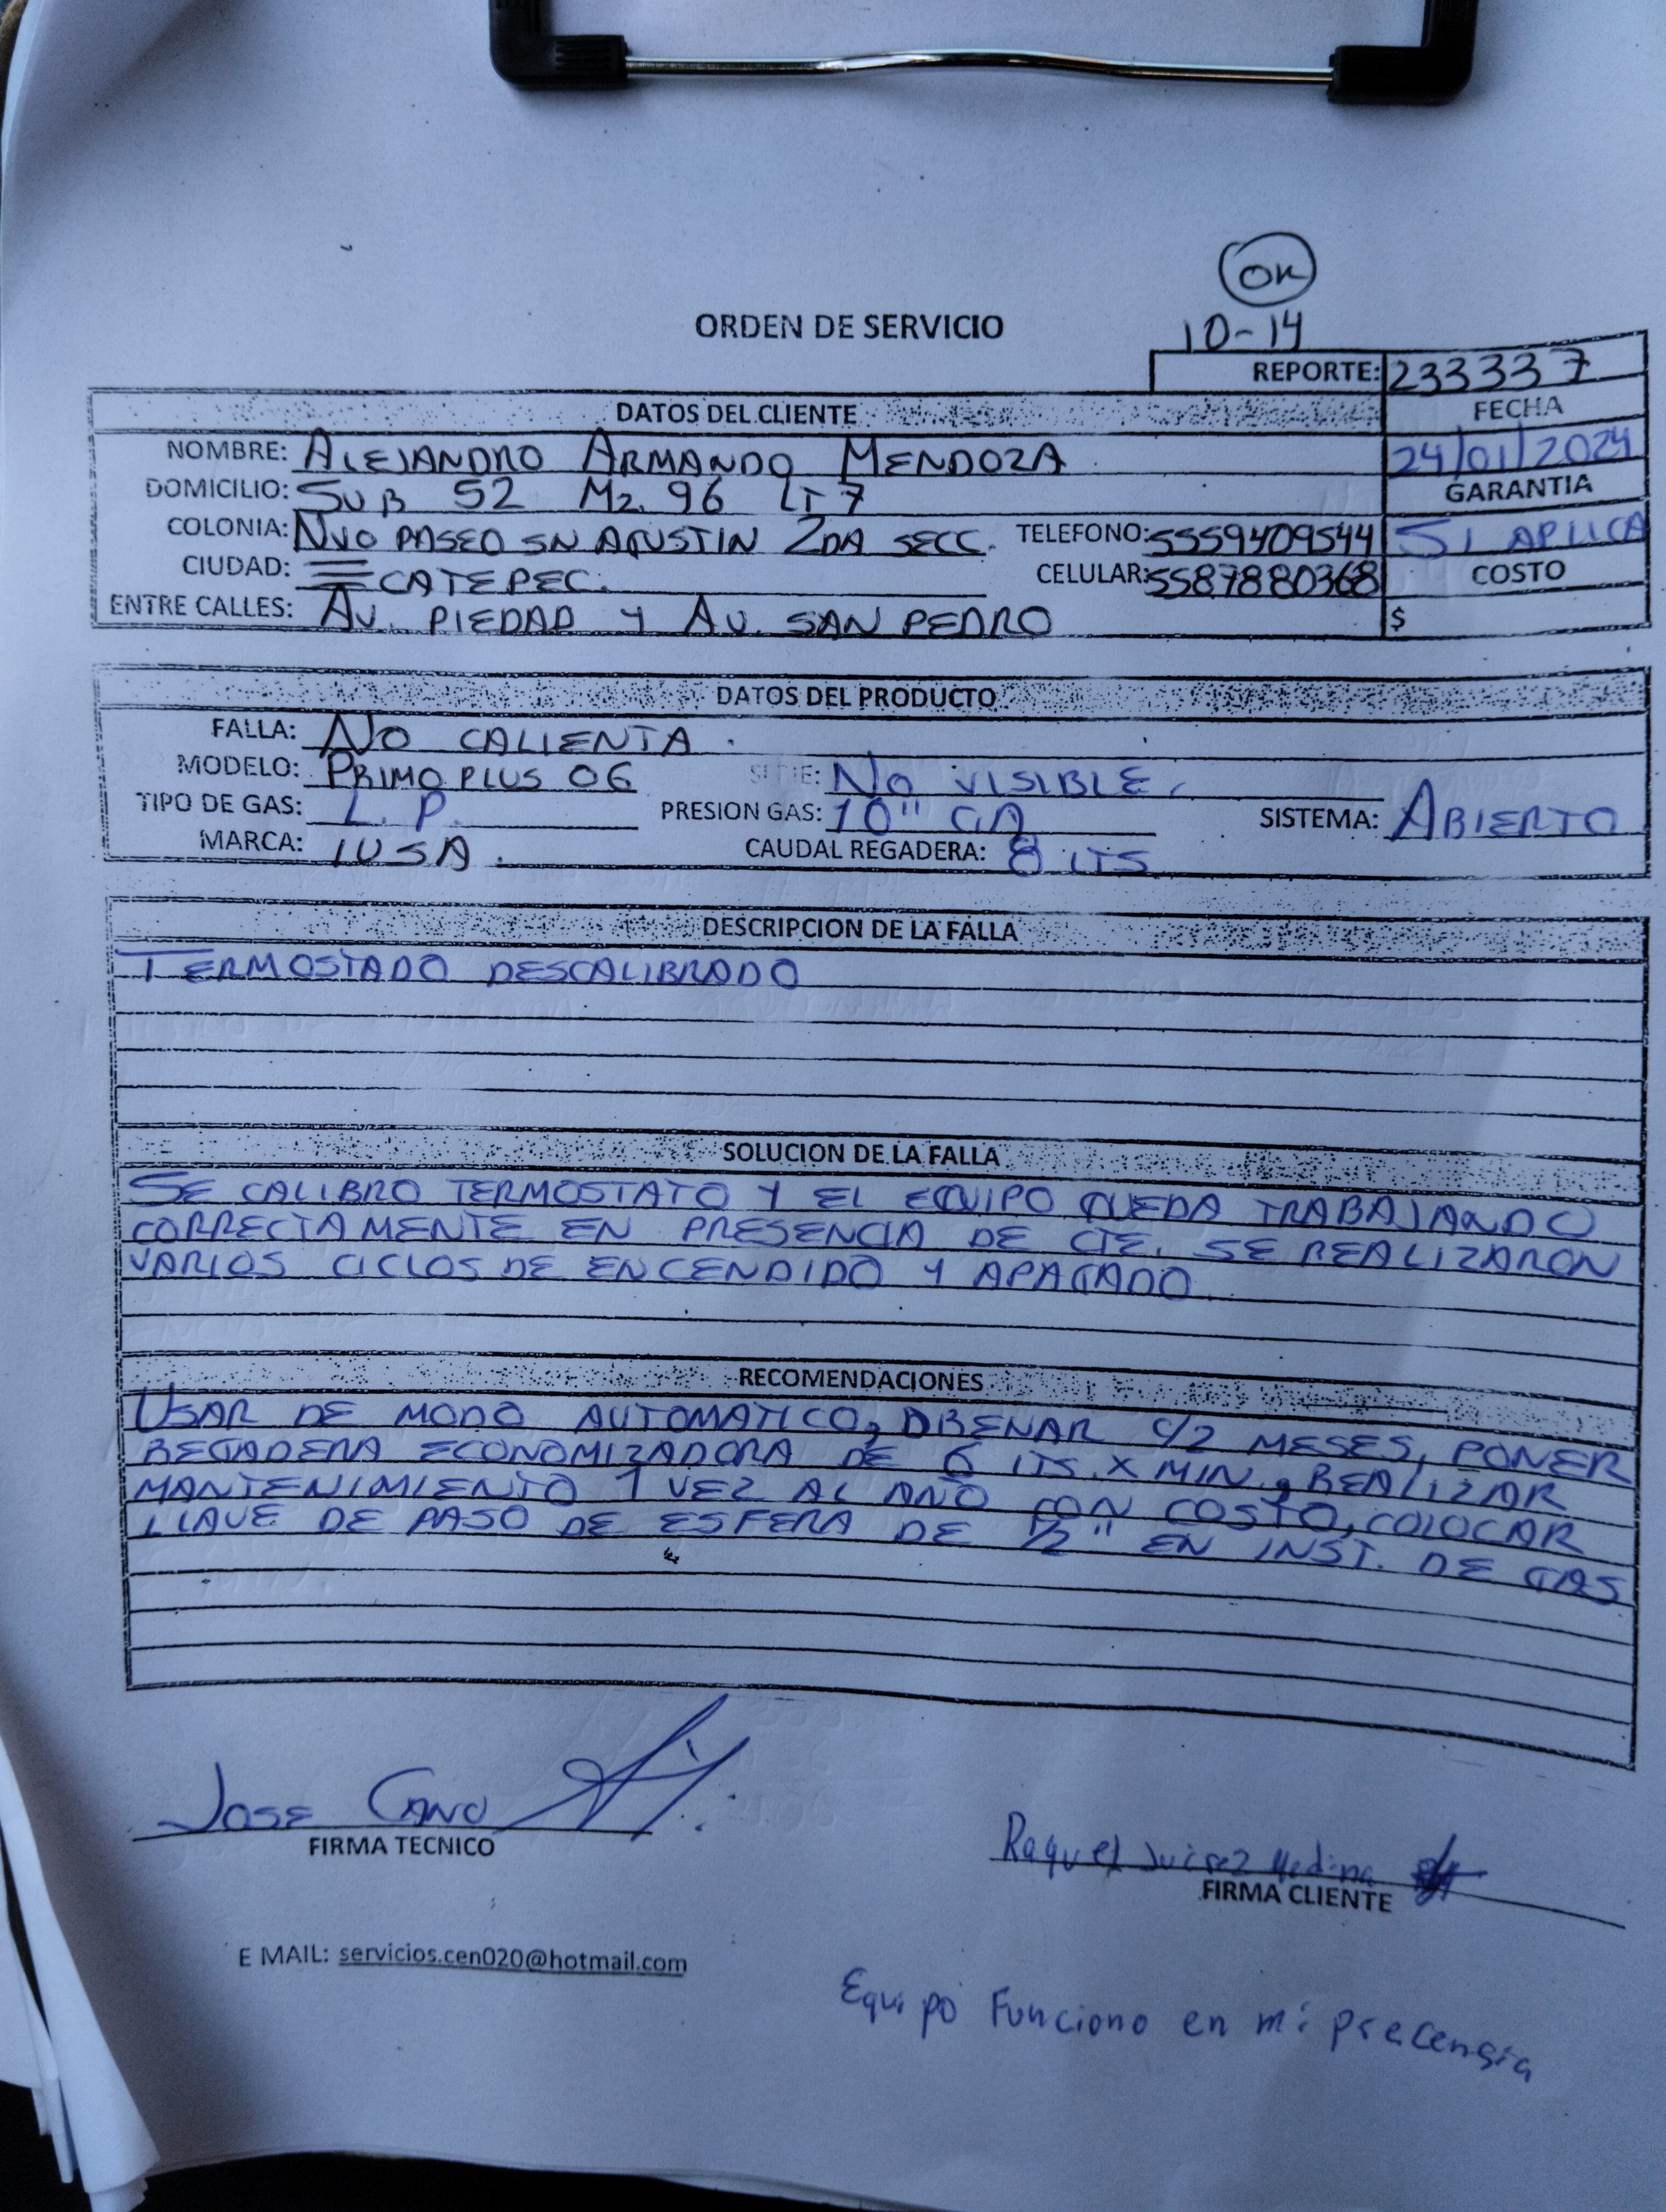 OK
10-14
ORDEN DE SERVICIO
REPORTE: 233337
DATOS DEL CLIENTE
FECHA
NOMBRE: ALEJANDRO ARMANDO MENDOZA
24/01/2024
DOMICILIO: SUR 52 MZ. 96 LT 7
GARANTIA
COLONIA: NVO PASEO SN AGUSTIN 2DA SECC. TELEFONO: 5559409544
SI APLICA
CIUDAD: ECATEPEC. CELULAR: 5587880368
COSTO
ENTRE CALLES: AV. PIEDAD Y AV. SAN PEDRO
$
DATOS DEL PRODUCTO
FALLA: NO CALIENTA.
MODELO: PRIMO PLUS 06 SERIE: NO VISIBLE.
TIPO DE GAS: L.P. PRESION GAS: 10" CA SISTEMA: ABIERTO
MARCA: IUSA. CAUDAL REGADERA: 8 LTS
DESCRIPCION DE LA FALLA
TERMOSTADO DESCALIBRADO
SOLUCION DE LA FALLA
SE CALIBRO TERMOSTATO Y EL EQUIPO QUEDA TRABAJANDO
CORRECTAMENTE EN PRESENCIA DE CTE. SE REALIZARON
VARIOS CICLOS DE ENCENDIDO Y APAGADO
RECOMENDACIONES
USAR DE MODO AUTOMATICO, DRENAR C/2 MESES, PONER
REGADERA ECONOMIZADORA DE 6 LTS. X MIN., REALIZAR
MANTENIMIENTO 1 VEZ AL AÑO CON COSTO, COLOCAR
LLAVE DE PASO DE ESFERA DE 1/2" EN INST. DE GAS
JOSE CANO
FIRMA TECNICO
Raquel Juárez Medina
FIRMA CLIENTE
E MAIL: servicios.cen020@hotmail.com
Equipo Funciono en mi precensia